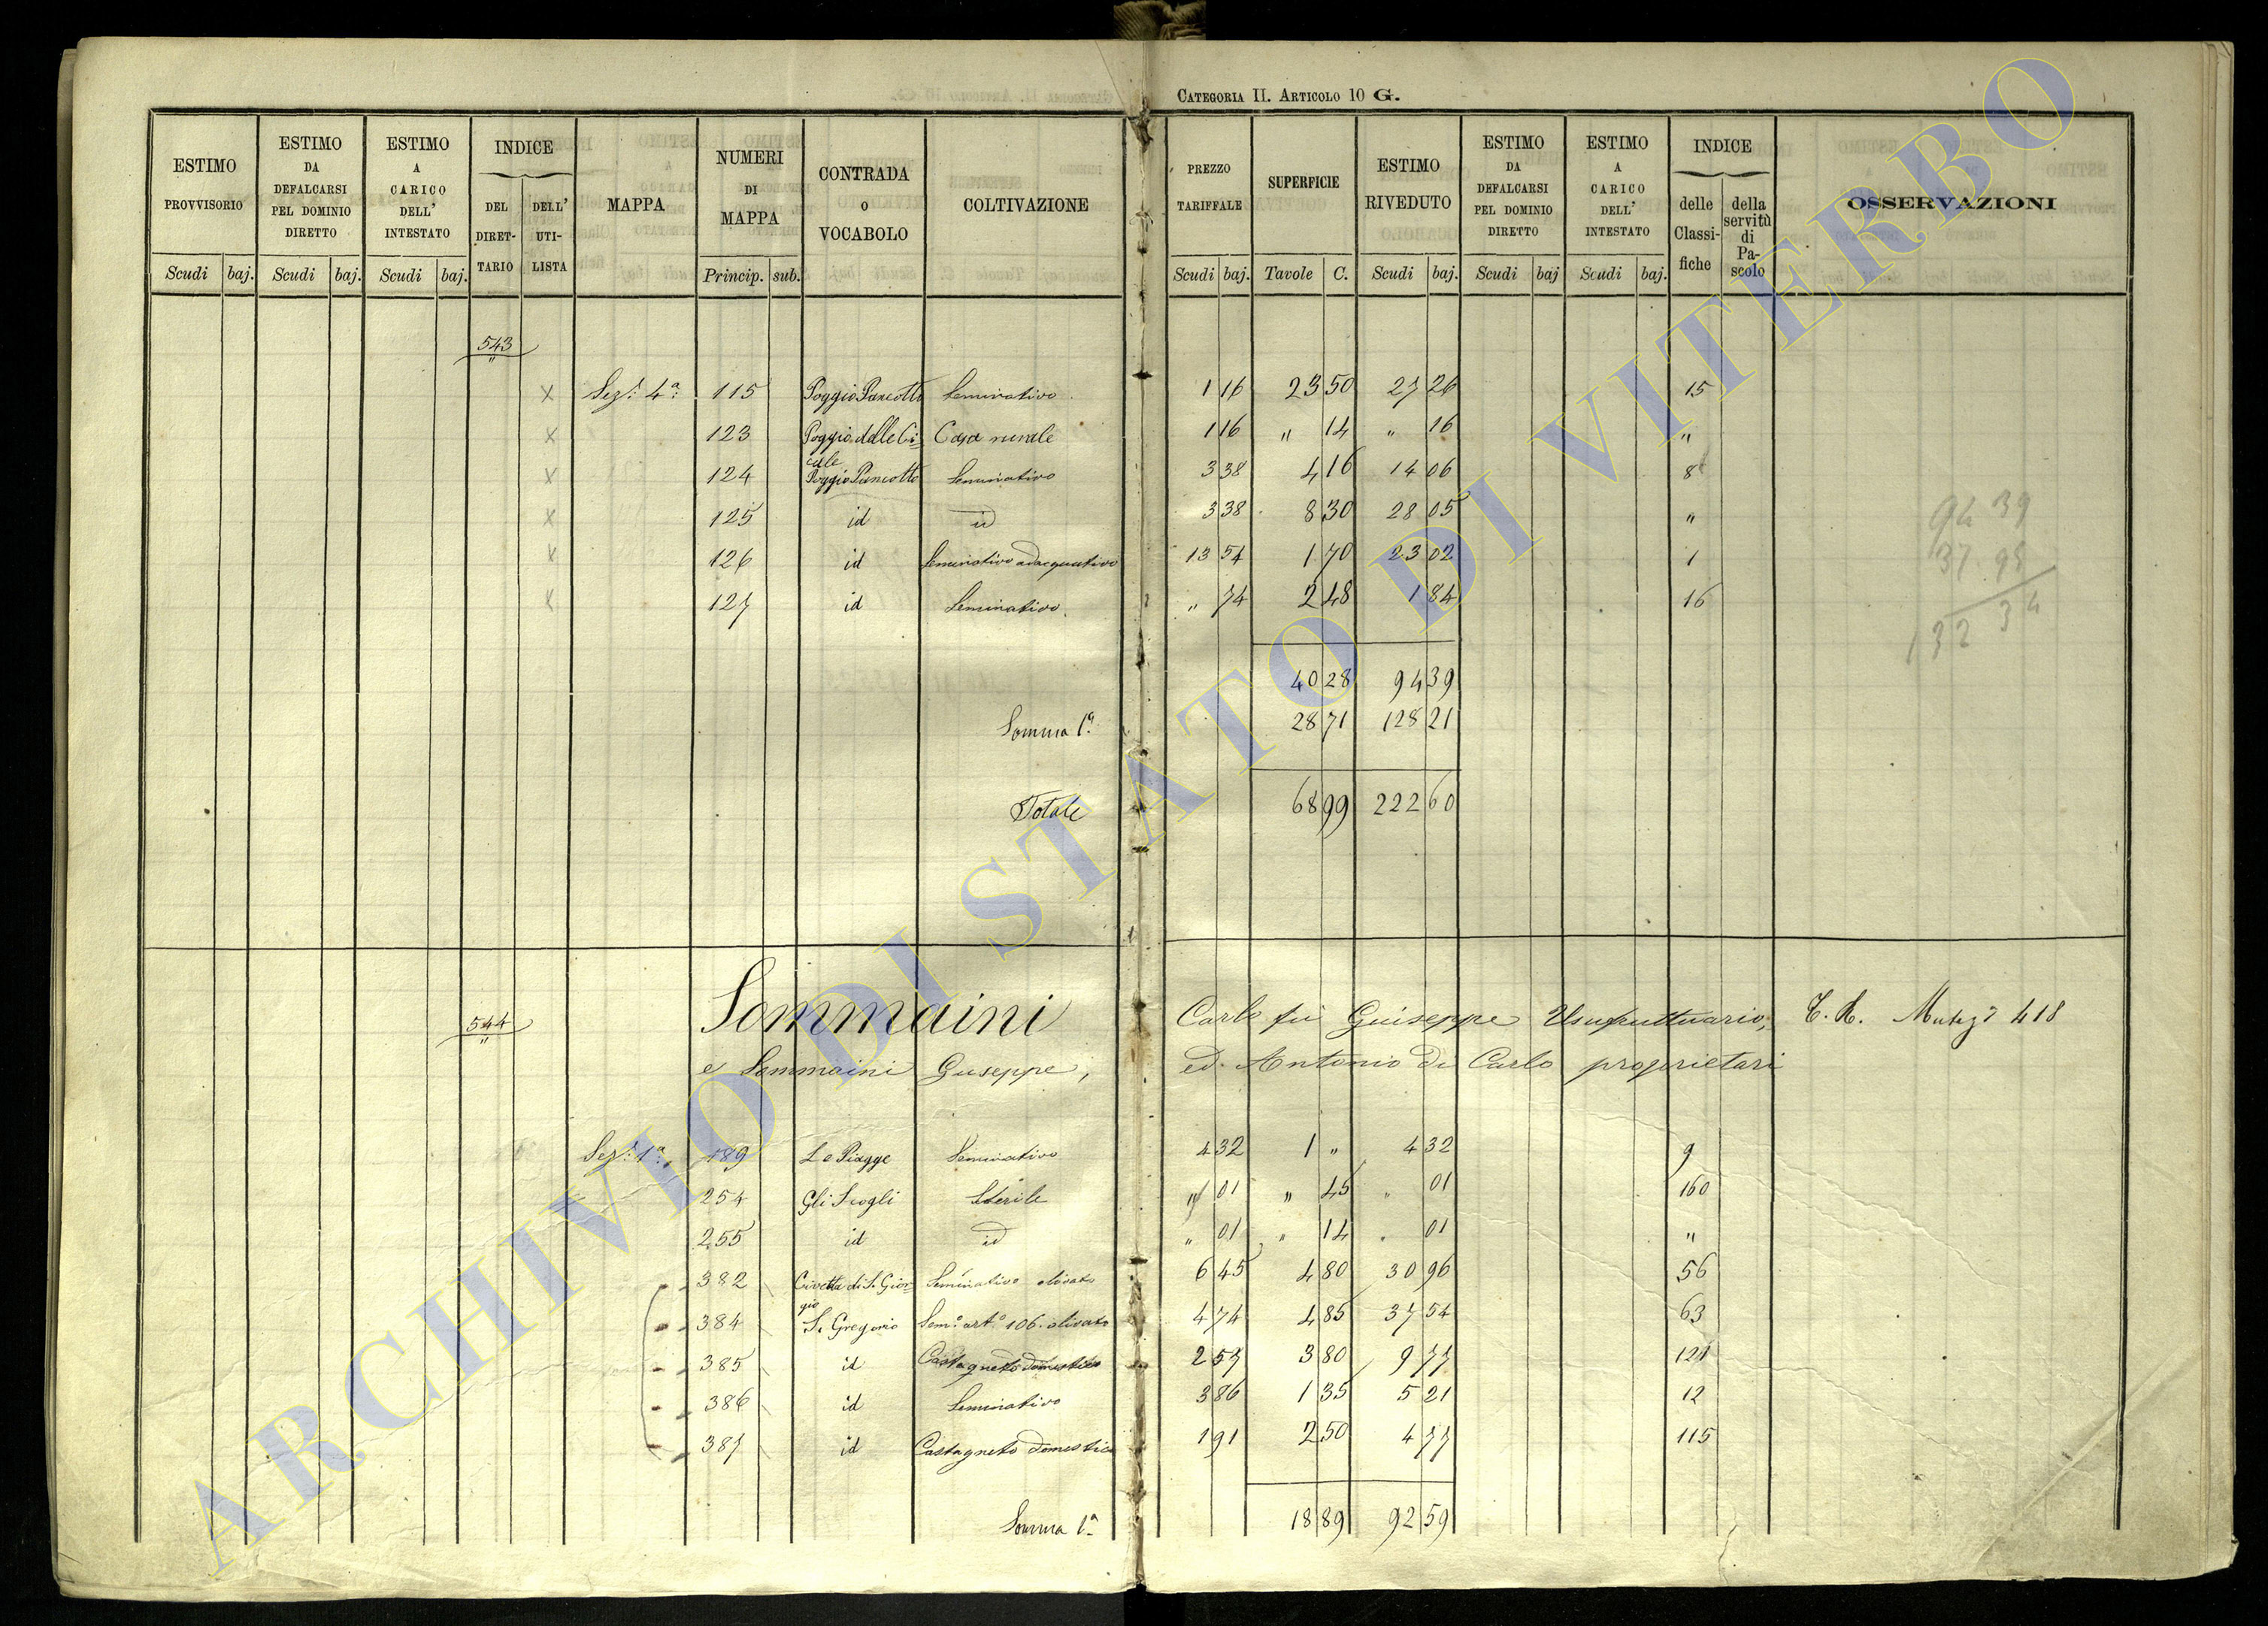 CATEGORIA II. ARTICOLO 10 G.
ESTIMO PROVVISORIO Scudi baj.
ESTIMO DA DEFALCARSI PEL DOMINIO DIRETTO Scudi baj.
ESTIMO A CARICO DELL' INTESTATO Scudi baj.
INDICE DEL DIRETTARIO DELL' UTILISTA
MAPPA
NUMERI DI MAPPA Princip. sub.
CONTRADA O VOCABOLO
COLTIVAZIONE
PREZZO TARIFFALE Scudi baj.
SUPERFICIE Tavole C.
ESTIMO RIVEDUTO Scudi baj.
ESTIMO DA DEFALCARSI PEL DOMINIO DIRETTO Scudi baj
ESTIMO A CARICO DELL' INTESTATO Scudi baj.
INDICE delle Classifiche della servitù di Pascolo
OSSERVAZIONI
543 "
x Sez.e 4a 115 Poggio Pancotto Seminativo 1 16 23 50 27 26 15
x 123 Poggio delle Cicale Casa rurale 1 16 " 14 " 16 "
x 124 Poggio Pancotto Seminativo 3 38 4 16 14 06 8
x 125 id id 3 38 8 30 28 05 "
x 126 id Seminativo adacquativo 13 54 1 70 23 02 1
x 127 id Seminativo " 74 2 48 1 84 16
94 39
37 95
132 34
40 28 94 39
Somma 1a 28 71 128 21
Totale 68 99 222 60
544 "
Sommaini Carlo fu Guiseppe Usufruttuario; T. R. Mutaz.e 418
e Sommaini Guseppe, ed Antonio di Carlo proprietari
Sez.e 1a 189 Le Piagge Seminativo 4 32 1 " 4 32 9
254 Gli Scogli Sterile " 01 " 45 " 01 160
255 id id " 01 " 14 " 01 "
382 Civetta di S. Giorgio Seminativo olivato 6 45 4 80 30 96 56
384 S. Gregorio Sem.o art.o 106. olivato 4 74 4 85 37 54 63
385 id Castagneto domestico 2 57 3 80 9 77 121
386 id Seminativo 3 86 1 35 5 21 12
387 id Castagneto domestico 1 91 2 50 4 77 115
Somma 1a 18 89 92 59
ARCHIVIO DI STATO DI VITERBO